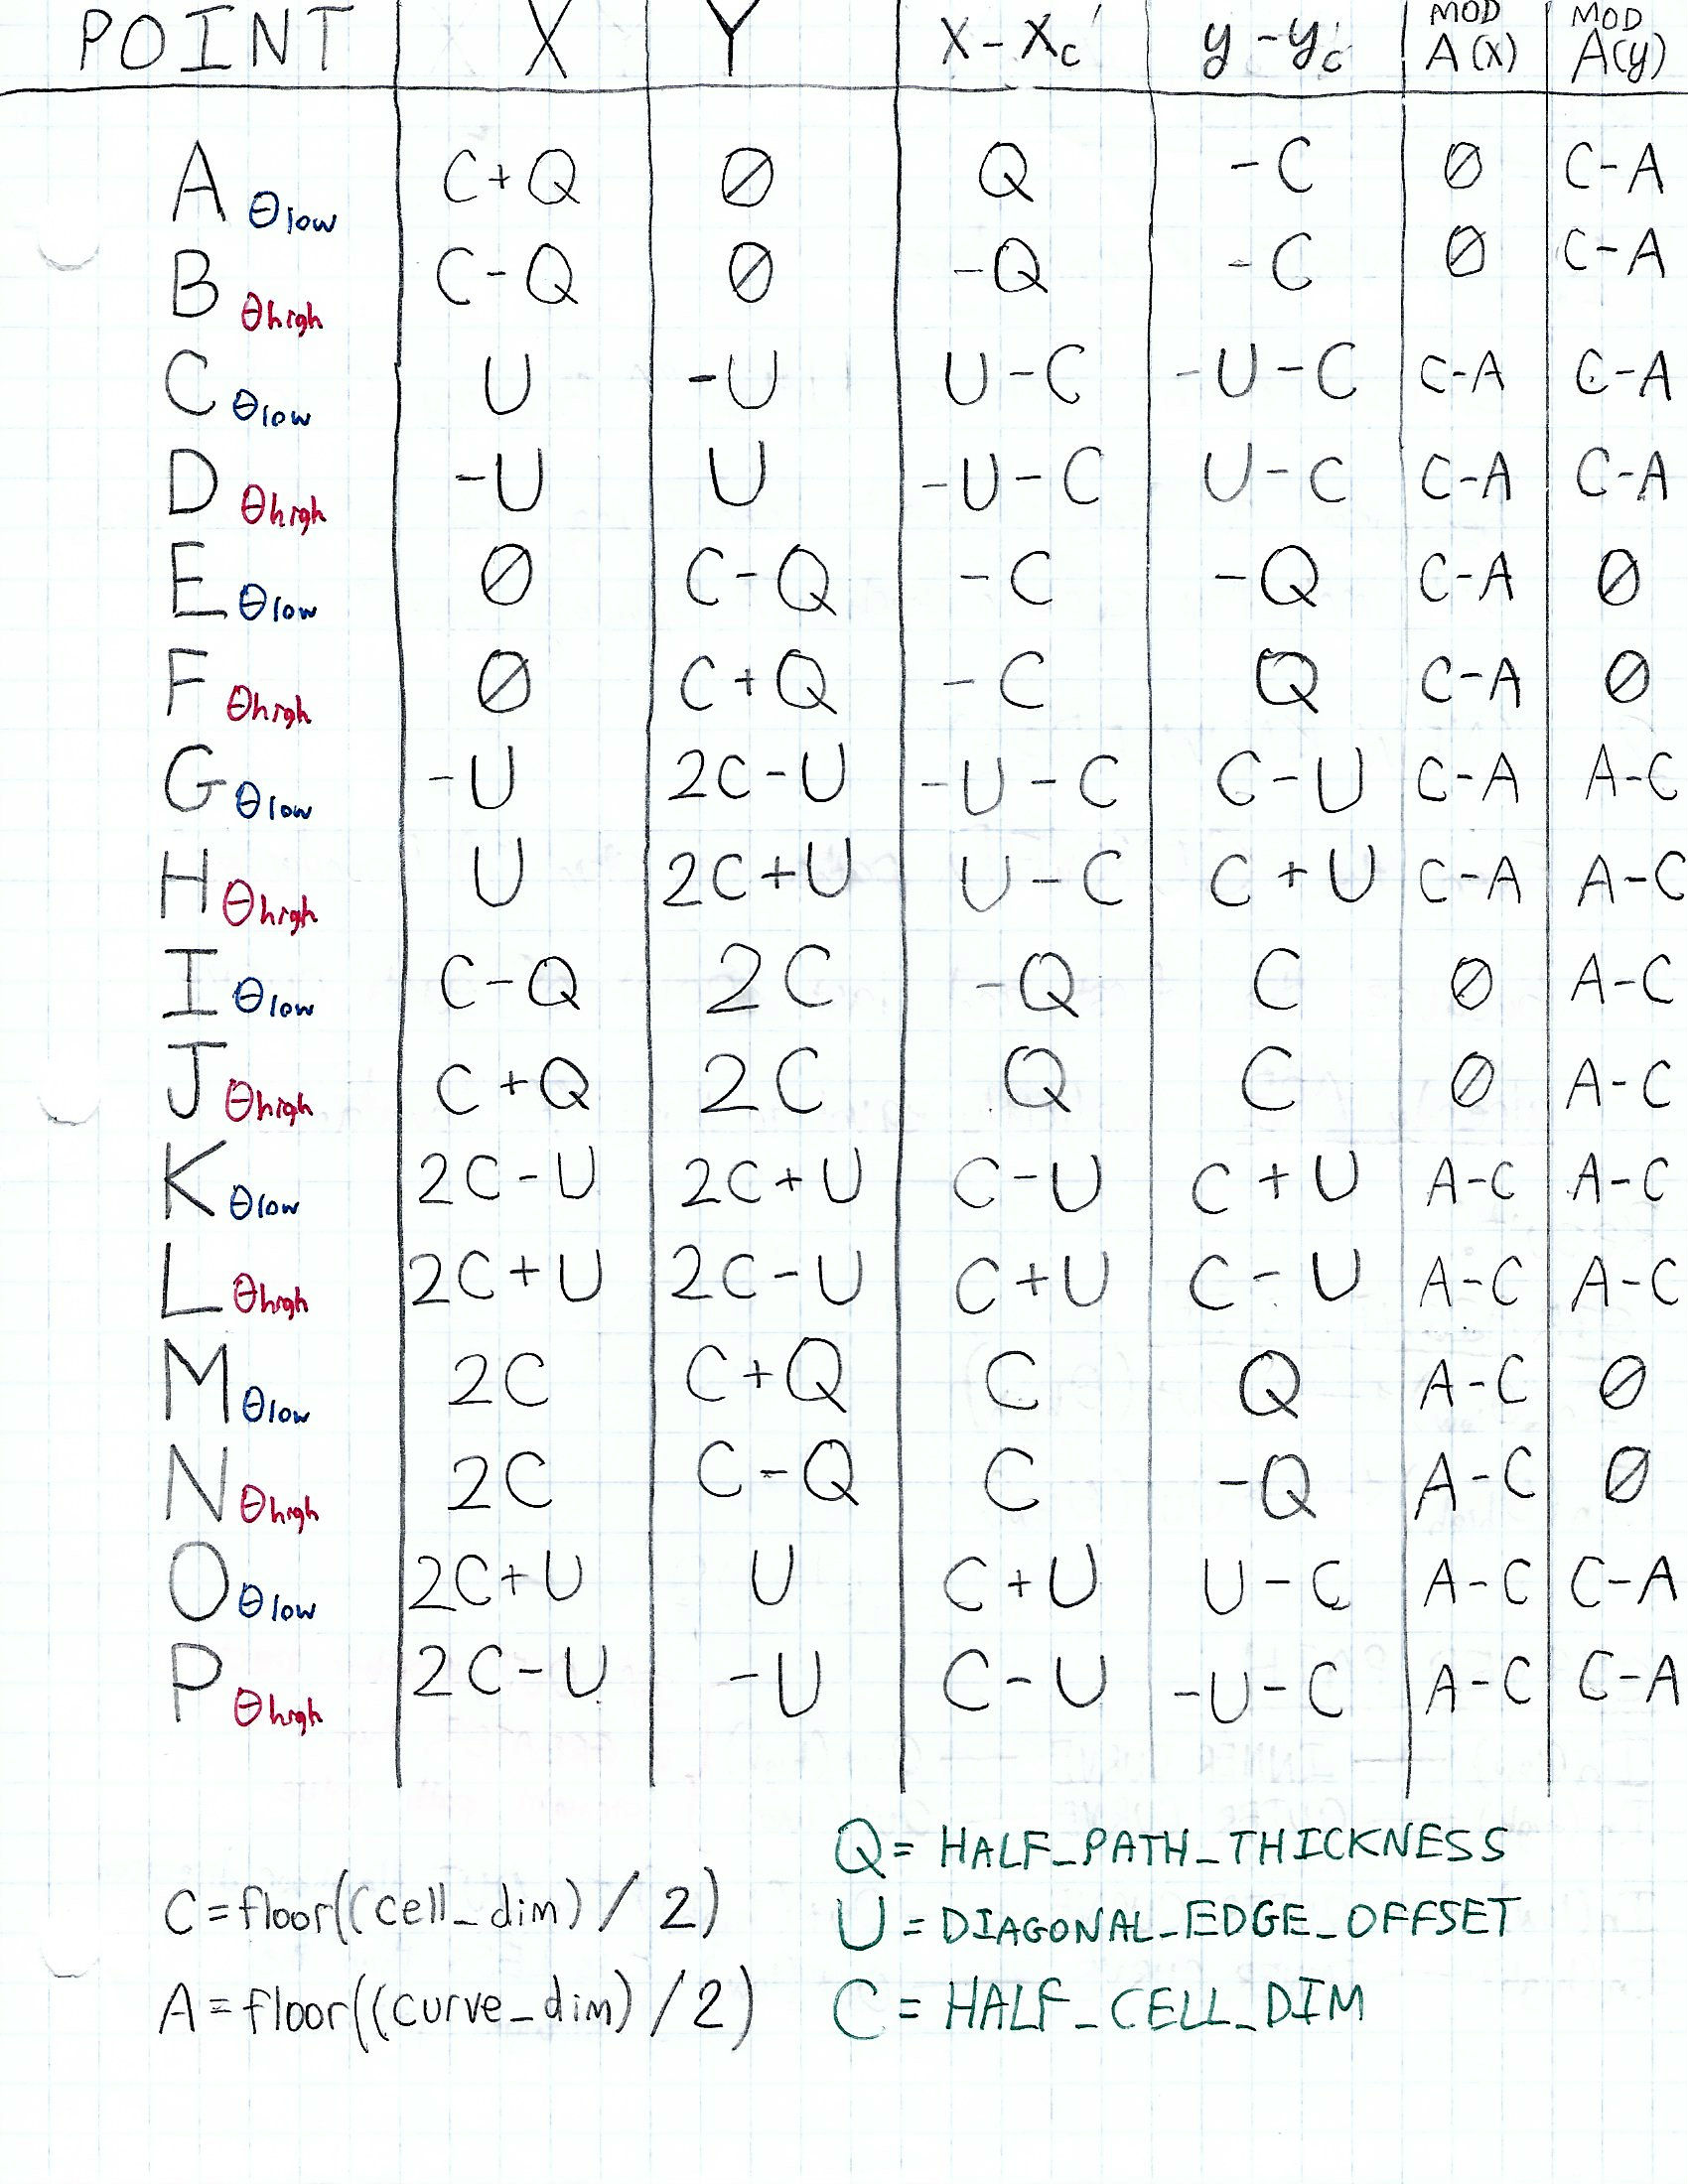 POINT X Y X-Xc y-yc MOD A(x) MOD A(y)
A θlow C+Q Ø Q -C Ø C-A
B θhigh C-Q Ø -Q -C Ø C-A
C θlow U -U U-C -U-C C-A C-A
D θhigh -U U -U-C U-C C-A C-A
E θlow Ø C-Q -C -Q C-A Ø
F θhigh Ø C+Q -C Q C-A Ø
G θlow -U 2C-U -U-C C-U C-A A-C
H θhigh U 2C+U U-C C+U C-A A-C
I θlow C-Q 2C -Q C Ø A-C
J θhigh C+Q 2C Q C Ø A-C
K θlow 2C-U 2C+U C-U C+U A-C A-C
L θhigh 2C+U 2C-U C+U C-U A-C A-C
M θlow 2C C+Q C Q A-C Ø
N θhigh 2C C-Q C -Q A-C Ø
O θlow 2C+U U C+U U-C A-C C-A
P θhigh 2C-U -U C-U -U-C A-C C-A
C=floor((cell_dim)/2)
A=floor((curve_dim)/2)
Q= HALF_PATH_THICKNESS
U=DIAGONAL_EDGE_OFFSET
C=HALF_CELL_DIM